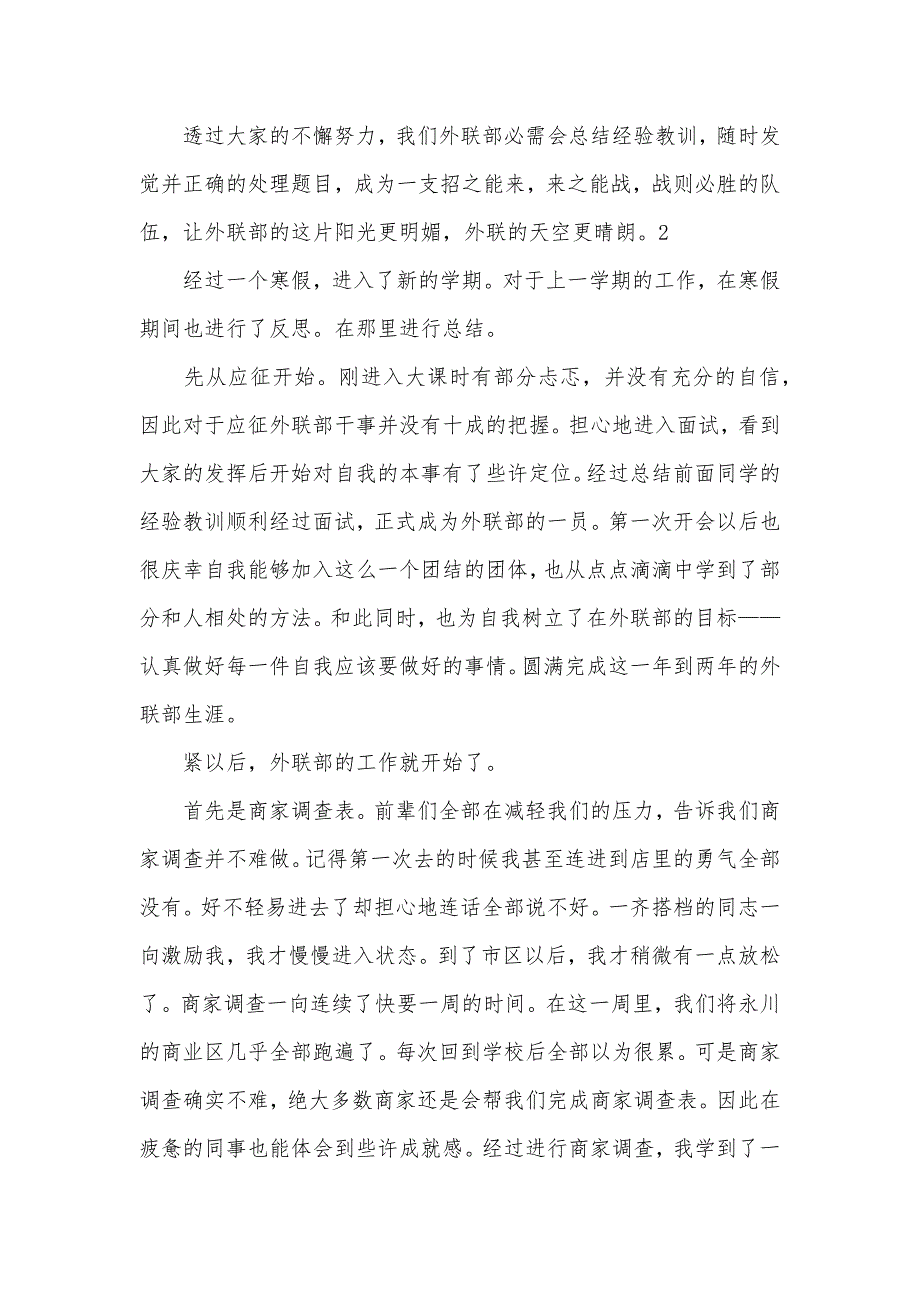 透过大家的不懈努力，我们外联部必需会总结经验教训，随时发
觉并正确的处理题目，成为一支招之能来，来之能战，战则必胜的队
伍，让外联部的这片阳光更明媚，外联的天空更晴朗。2
经过一个寒假，进入了新的学期。对于上一学期的工作，在寒假
期间也进行了反思。在那里进行总结。
先从应征开始。刚进入大课时有部分忐忑，并没有充分的自信，
因此对于应征外联部干事并没有十成的把握。担心地进入面试，看到
大家的发挥后开始对自我的本事有了些许定位。经过总结前面同学的
经验教训顺利经过面试，正式成为外联部的一员。第一次开会以后也
很庆幸自我能够加入这么一个团结的团体，也从点点滴滴中学到了部
分和人相处的方法。和此同时，也为自我树立了在外联部的目标——
认真做好每一件自我应该要做好的事情。圆满完成这一年到两年的外
联部生涯。
紧以后，外联部的工作就开始了。
首先是商家调查表。前辈们全部在减轻我们的压力，告诉我们商
家调查并不难做。记得第一次去的时候我甚至连进到店里的勇气全部
没有。好不轻易进去了却担心地连话全部说不好。一齐搭档的同志一
向激励我，我才慢慢进入状态。到了市区以后，我才稍微有一点放松
了。商家调查一向连续了快要一周的时间。在这一周里，我们将永川
的商业区几乎全部跑遍了。每次回到学校后全部以为很累。可是商家
调查确实不难，绝大多数商家还是会帮我们完成商家调查表。因此在
疲惫的同事也能体会到些许成就感。经过进行商家调查，我学到了一